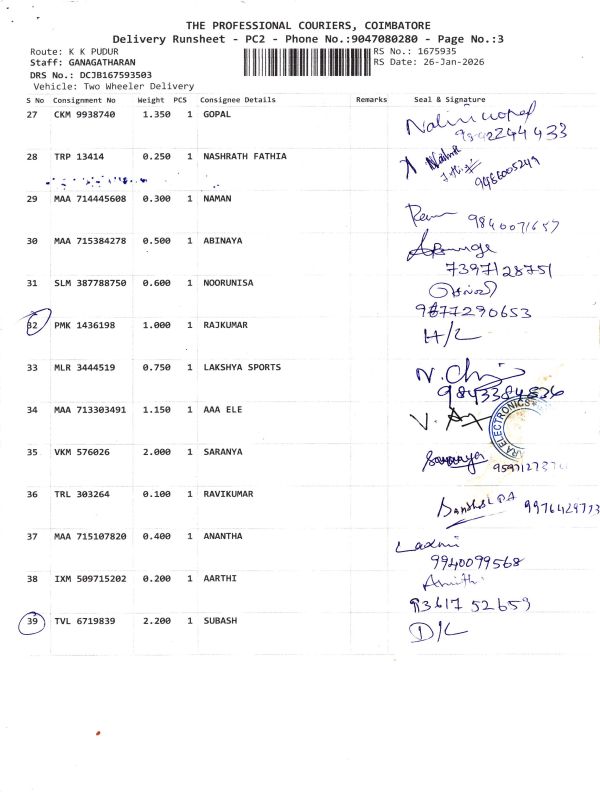 THE PROFESSIONAL COURIERS, COIMBATORE
Delivery Runsheet - PC2 - Phone No.:9047080280 - Page No.:3
Route: K K PUDUR
RS No.: 1675935
Staff: GANAGATHARAN
RS Date: 26-Jan-2026
DRS No.: DCJB167593503
Vehicle: Two Wheeler Delivery
S No Consignment No Weight PCS Consignee Details Remarks Seal & Signature
27 CKM 9938740 1.350 1 GOPAL
28 TRP 13414 0.250 1 NASHRATH FATHIA
9486005249
29 MAA 714445608 0.300 1 NAMAN
9840071657
30 MAA 715384278 0.500 1 ABINAYA
7397128751
31 SLM 387788750 0.600 1 NOORUNISA
9877290653
32 PMK 1436198 1.000 1 RAJKUMAR H/L
33 MLR 3444519 0.750 1 LAKSHYA SPORTS
34 MAA 713303491 1.150 1 AAA ELE
ELECTRONICS
35 VKM 576026 2.000 1 SARANYA Saranya
36 TRL 303264 0.100 1 RAVIKUMAR
37 MAA 715107820 0.400 1 ANANTHA Laxmi
9940099568
38 IXM 509715202 0.200 1 AARTHI
93617 52659
39 TVL 6719839 2.200 1 SUBASH D/L